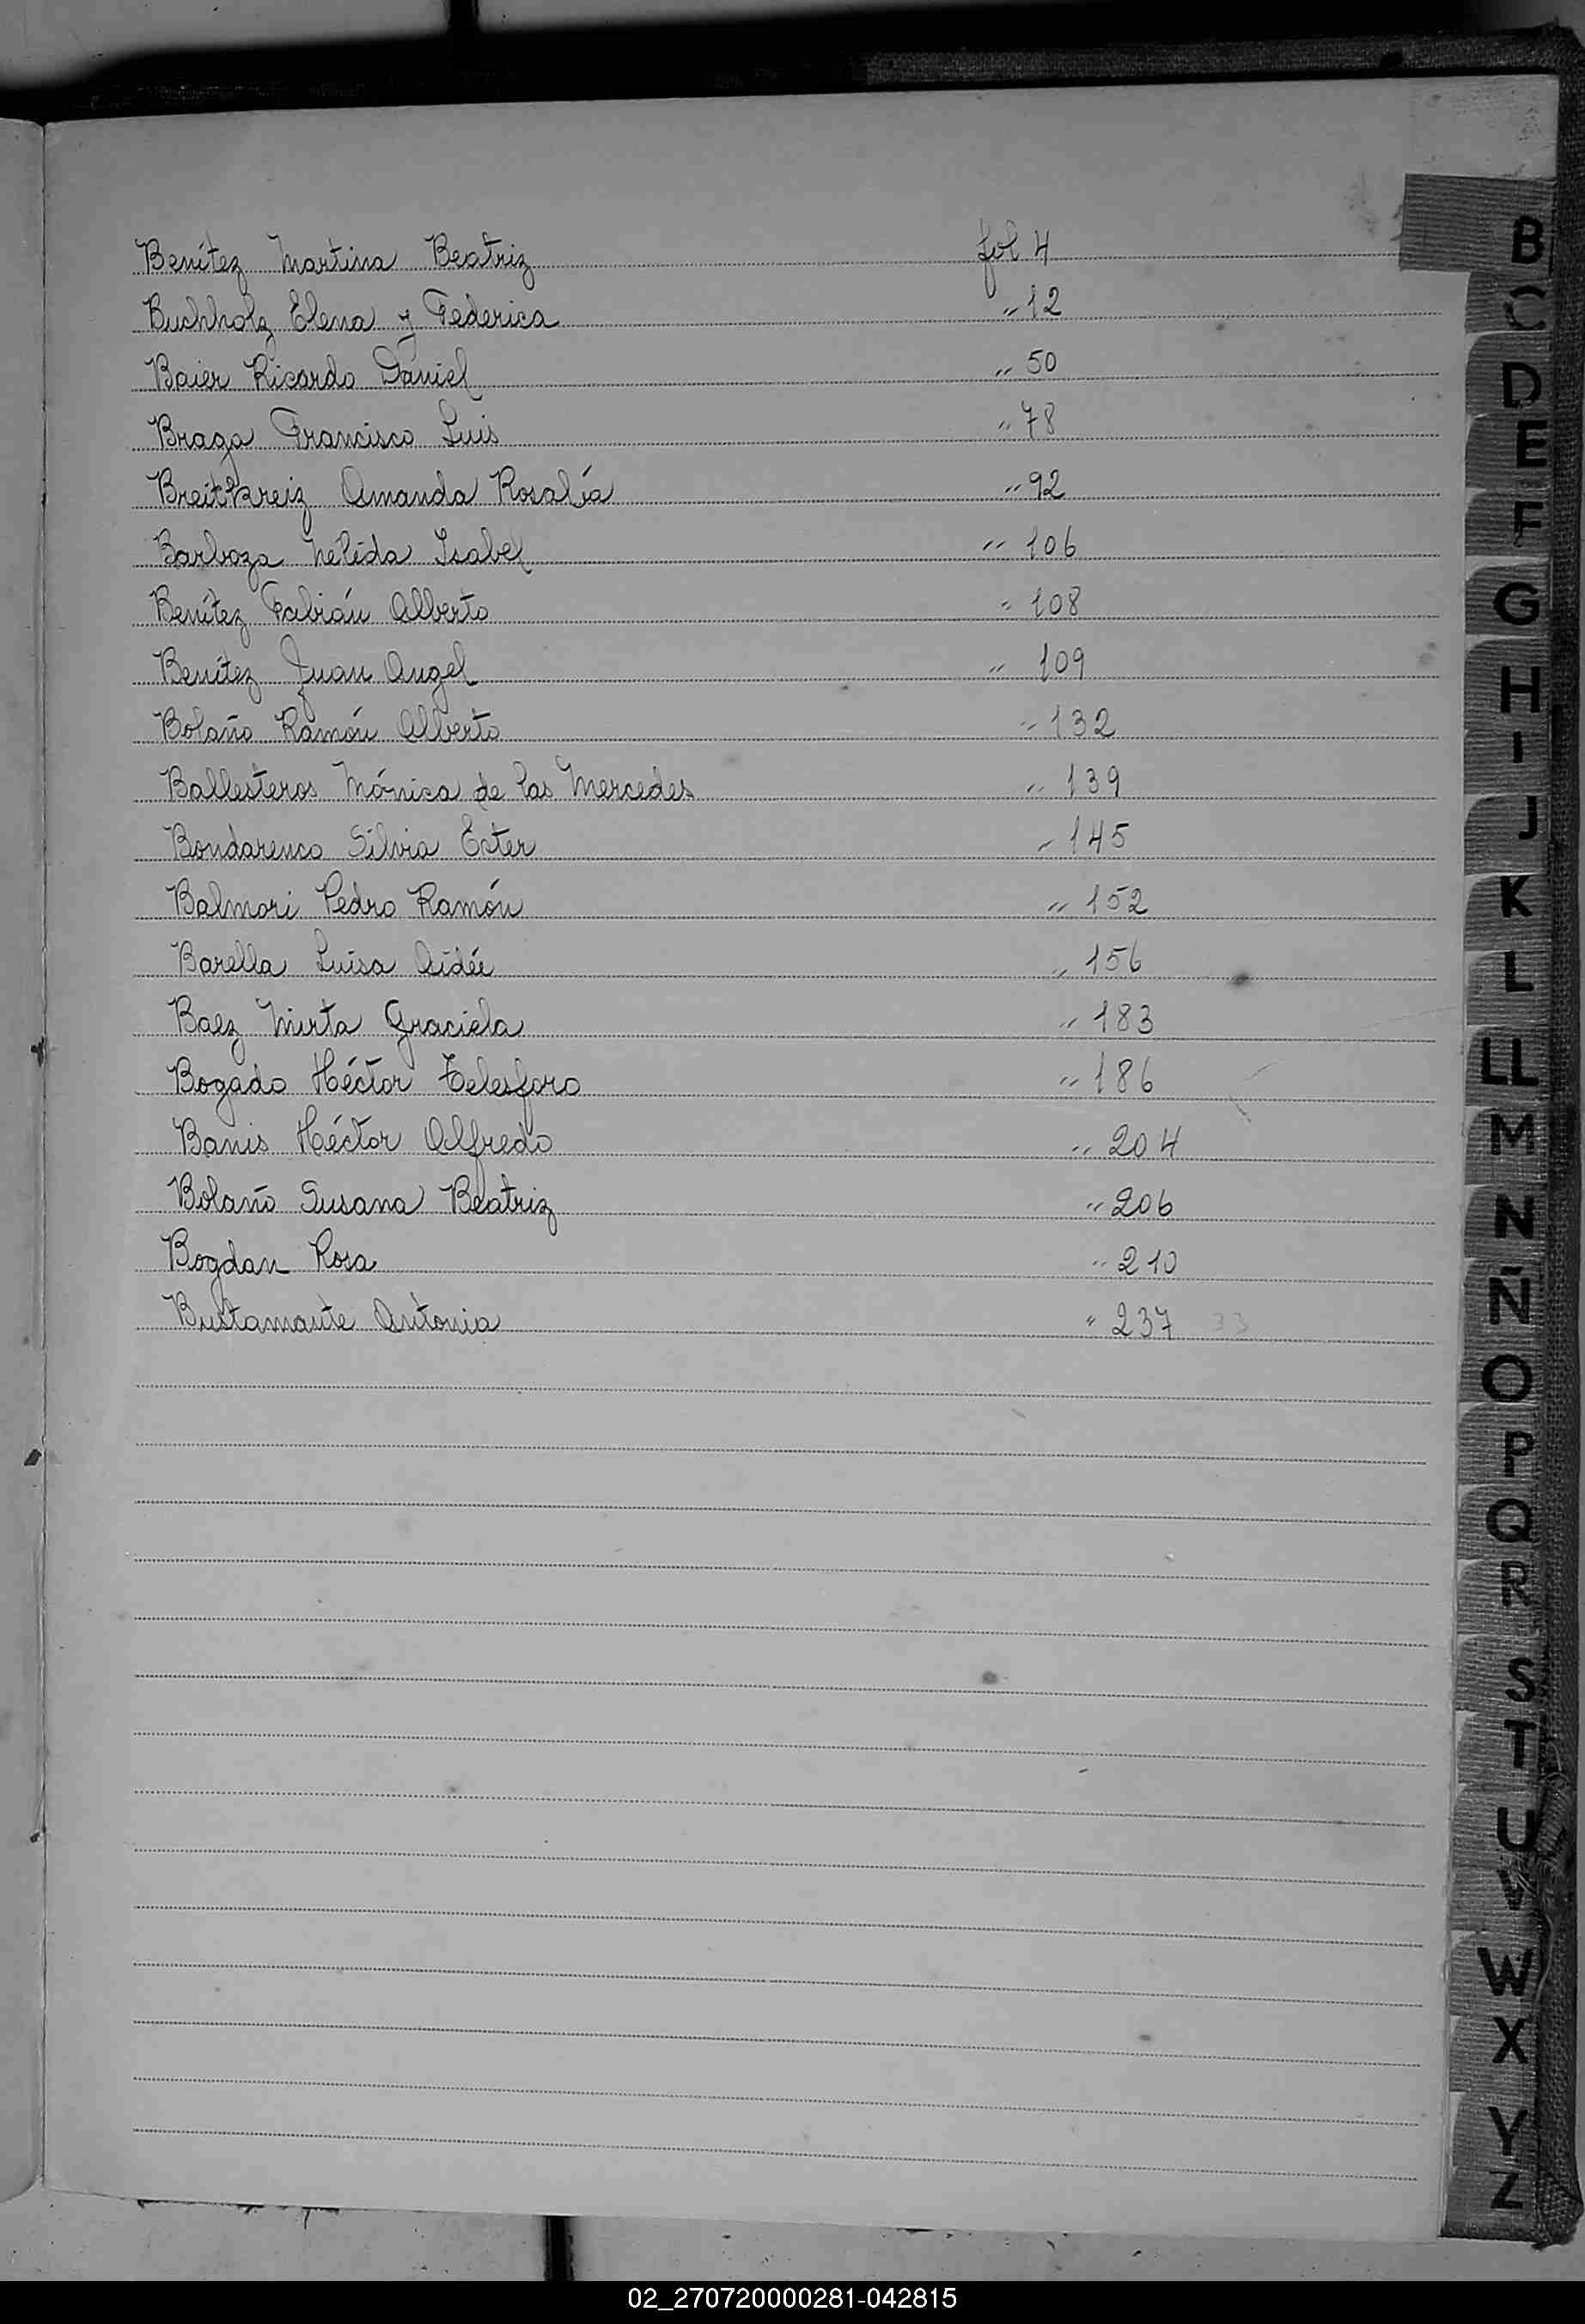 Benítez Martina Beatriz fol 4
Buchholz Elena y Federica " 12
Baier Ricardo Daniel " 50
Braga Francisco Luis " 78
Breitkreiz Amanda Rosalía " 92
Barboza Nélida Isabel " 106
Benítez Fabián Alberto " 108
Benítez Juan Angel " 109
Bolaño Ramón Alberto " 132
Ballesteros Mónica de las Mercedes " 139
Bondarenco Silvia Ester " 145
Balmori Pedro Ramón " 152
Barella Luisa Aidée " 156
Baez Mirta Graciela " 183
Bogado Héctor Telesforo " 186
Banis Héctor Alfredo " 204
Bolaño Susana Beatriz " 206
Bogdan Rosa " 210
Bustamante Antonia " 237 33
B
C
D
E
F
G
H
I
J
K
L
LL
M
N
Ñ
O
P
Q
R
S
T
U
V
W
X
Y
Z
02_270720000281-042815